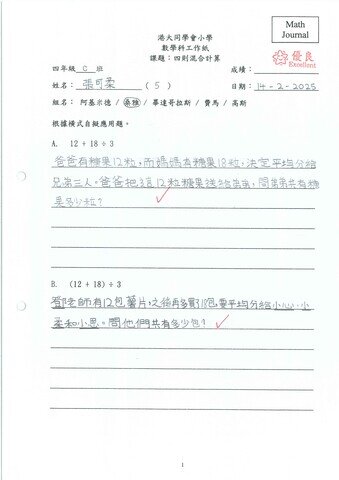 Math
Journal
港大同學會小學
數學科工作紙
課題：四則混合計算
優良
Excellent
四年級 C 班
成績：
姓名： 張可柔 （ 5 ）
日期： 14-2-2025
組名： 阿基米德 / 歐拉 / 畢達哥拉斯 / 費馬 / 高斯
根據橫式自擬應用題。
A. 12 + 18 ÷ 3
爸爸有糖果12粒，而媽媽有糖果18粒，決定平均分給
兄弟三人。爸爸把這12粒糖果送給弟弟，問弟弟共有糖
果多少粒？
B. (12 + 18) ÷ 3
鄧老師有12包薯片，之後再多買18包，要平均分給小心、小
柔和小思。問他們共有多少包？
1